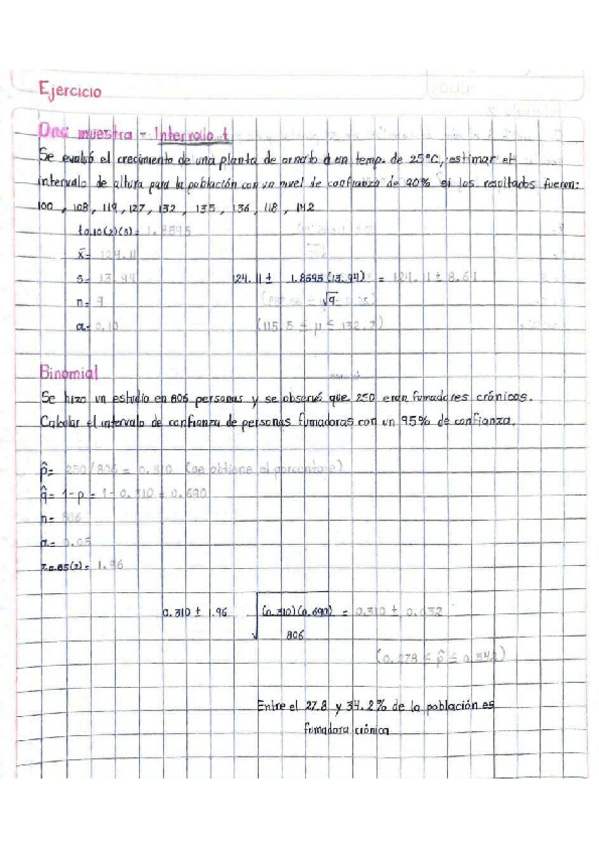 Ejercicio
Una muestra - Intervalo t
Se evaluó el crecimiento de una planta de ornato a en temp. de 25°C, estimar el
intervalo de altura para la población con un nivel de confianza de 90% si los resultados fueron:
100, 108, 119, 127, 132, 135, 136, 118, 142
t0.10(2)(8)= 1.8595
x̄= 124.11
s= 13.94 124.11 ± 1.8595(13.94) = 124.11 ± 8.64
n= 9 √9
α= 0.10 (115.5 ≤ μ ≤ 132.7)
Binomial
Se hizo un estudio en 806 personas y se observó que 250 eran fumadores crónicos.
Calcular el intervalo de confianza de personas fumadoras con un 95% de confianza.
p̂= 250/806 = 0.310 (se obtiene el porcentaje)
q̂= 1-p = 1-0.310 = 0.690
n= 806
α= 0.05
z0.05(2)= 1.96
0.310 ± 1.96 √ (0.310)(0.690) = 0.310 ± 0.032
806
(0.278 ≤ p̂ ≤ 0.342)
Entre el 27.8 y 34.2% de la población es
fumadora crónica